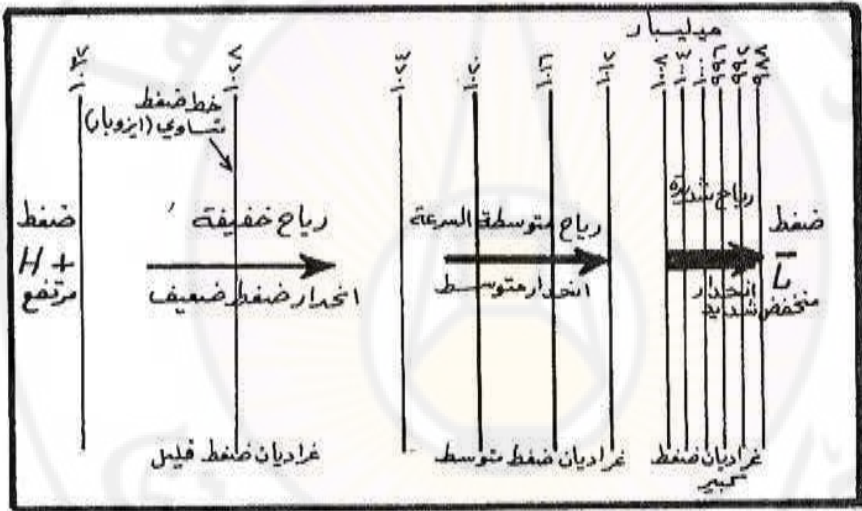 ميليبار
١٠٣٢ ١٠٢٨ ١٠٢٤ ١٠٢٠ ١٠١٦ ١٠١٢ ١٠٠٨ ١٠٠٤ ١٠٠٠ ٩٩٦ ٩٩٢ ٩٨٨
خط ضغط
تساوي (ايزوبار)
ضغط
H +
مرتفع
رياح خفيفة
انحدار ضغط ضعيف
رياح متوسطة السرعة
انحدار متوسط
رياح شديدة
انحدار
شديد
ضغط
L -
منخفض
غراديان ضغط قليل
غراديان ضغط متوسط
غراديان ضغط
كبير